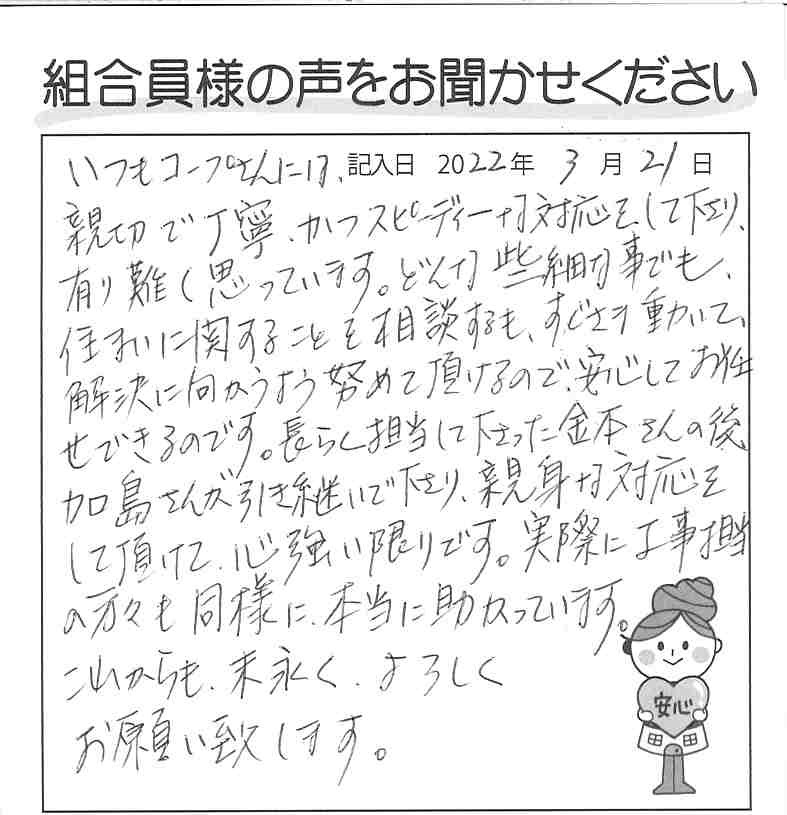 組合員様の声をお聞かせください
いつもコープさんには、記入日 2022年 3月 21日
親切で丁寧、かつスピーディーな対応をして下さり、
有り難く思っています。どんな些細な事でも、
住まいに関することを相談するも、すぐさま動いて、
解決に向かうよう努めて頂けるので、安心してお任
せできるのです。長らく担当して下さった金本さんの後、
加島さんが引き継いで下さり、親身な対応を
して頂けて、心強い限りです。実際に工事担当
の方々も同様に、本当に助かっています。
これからも、末永く、よろしく
お願い致します。
安心